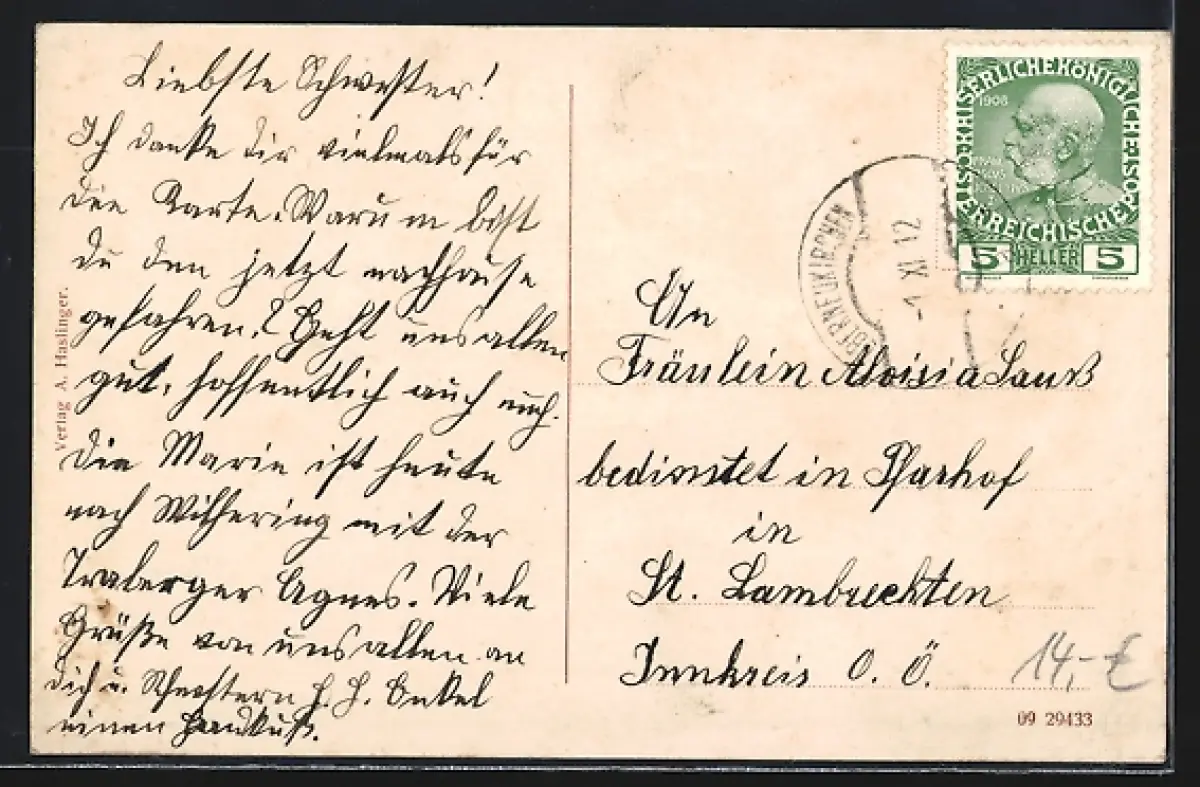 Liebste Schwester!
Ich danke dir vielmals für
die Karte. Warum bist
du den jetzt nachhause
gefahren? Geht uns allen
gut, hoffentlich auch euch.
Die Marie ist heute
nach Wilhering mit der
Traberger Agnes. Viele
Grüße von uns allen an
dich u. Schwestern H. H. Onkel
einen Handkuß.
Verlag A. Haslinger.
KAISERLICHE KÖNIGLICHE
ÖSTERREICHISCHE
1908
5 HELLER 5
OBERNEUKIRCHEN
-1 XI 12
An
Fräulein Aloisia Lauß
bedinstet in Pfarhof
in
St. Lambrechten
Innkreis O. Ö.
14,- €
09 29433